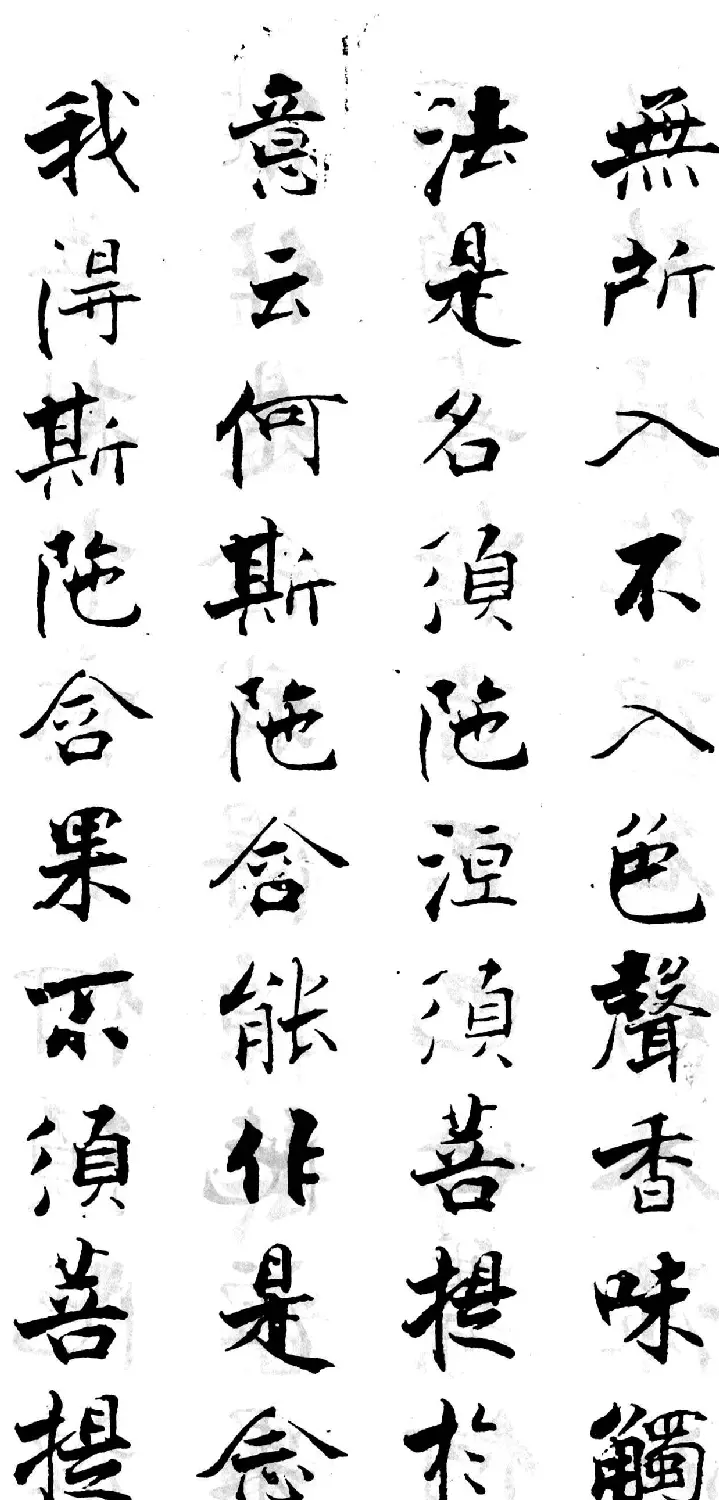 無所入不入色聲香味觸
法是名須陁洹須菩提於
意云何斯陁含能作是念
我得斯陁含果不須菩提